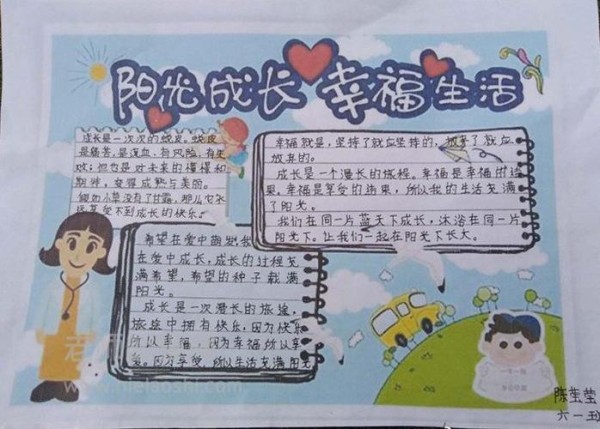 阳光成长 幸福生活
成长是一次次的蜕皮。蜕皮
是痛苦，
有风险，有失
败；但也是对未来的憧憬和
期盼，变得成熟与美丽。
假如小草没有了甘露，那么它永
远享受不到成长的快乐。
幸福就是，坚持了就应坚持的，放弃了就应
放弃的。
成长是一个漫长的旅程。幸福是幸福的结
果。幸福是享受的结果，所以我的生活充满
了阳光。
我们在同一片蓝天下成长，沐浴在同一片
阳光下。让我们一起在阳光下长大。
希望在爱中萌发
在爱中成长，成长的过程充
满希望，希望的种子载满
阳光。
成长是一次漫长的旅途，
旅途中拥有快乐，因为快乐
所以幸福，因为幸福所以享
受。因为享受，所以生活充满阳光
陈莹莹
六一班